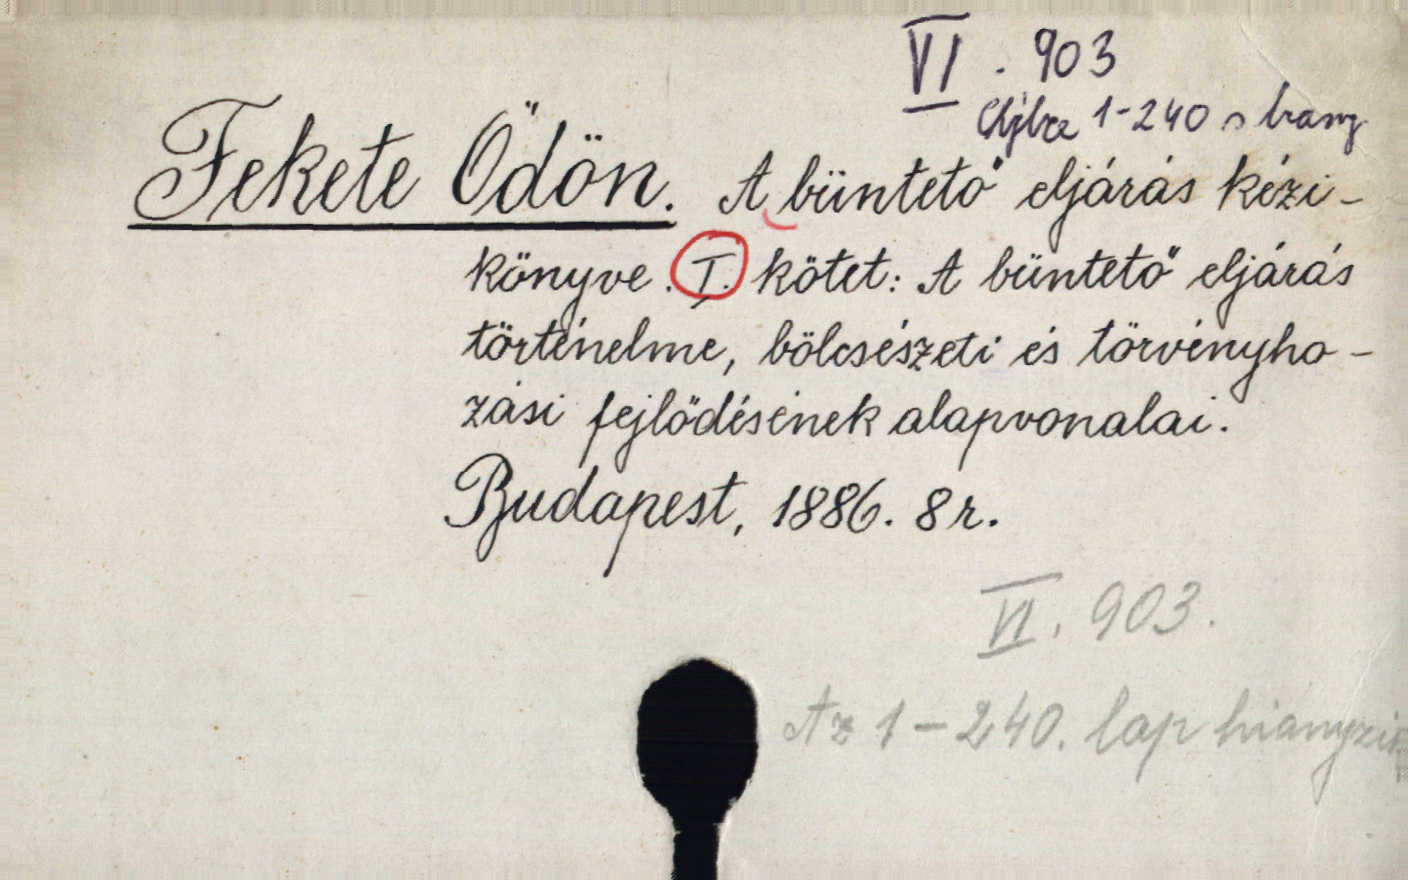 VI. 903
1-240
Fekete Ödön. A büntető eljárás kézi-
könyve. I. kötet: A büntető eljárás
történelme, bölcsészeti és törvényho-
zási fejlődésének alapvonalai.
Budapest, 1886. 8 r.
VI. 903.
Az 1-240. lap hianyzik